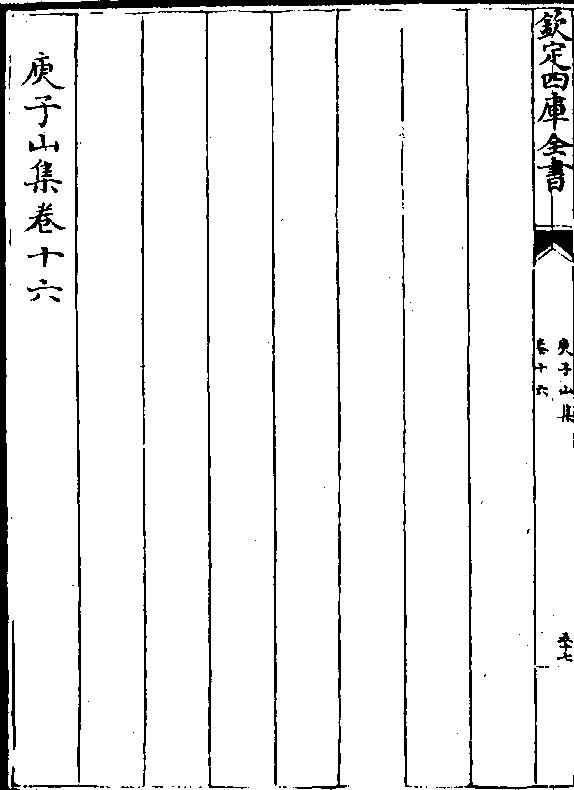 欽定四庫全書
庾子山集
卷十六
五十七
庾子山集卷十六